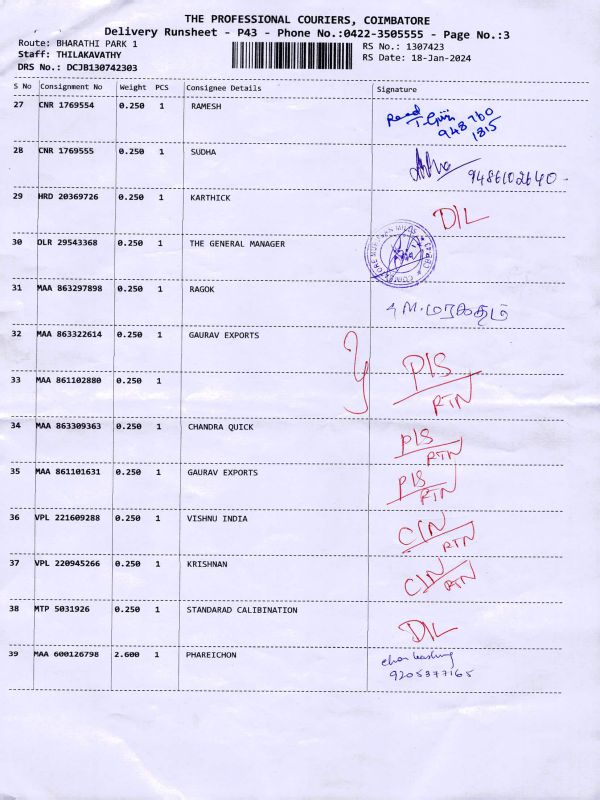 THE PROFESSIONAL COURIERS, COIMBATORE
Delivery Runsheet - P43 - Phone No.:0422-3505555 - Page No.:3
Route: BHARATHI PARK 1 RS No.: 1307423
Staff: THILAKAVATHY RS Date: 18-Jan-2024
DRS No.: DCJB130742303
S No Consignment No Weight PCS Consignee Details Signature
27 CNR 1769554 0.250 1 RAMESH
948760
1815
28 CNR 1769555 0.250 1 SUDHA
9486102640
29 HRD 20369726 0.250 1 KARTHICK D/L
30 DLR 29543368 0.250 1 THE GENERAL MANAGER
31 MAA 863297898 0.250 1 RAGOK
M. மரகதம்
32 MAA 863322614 0.250 1 GAURAV EXPORTS
P/S
33 MAA 861102880 0.250 1
RTN
34 MAA 863309363 0.250 1 CHANDRA QUICK P/S
RTN
35 MAA 861101631 0.250 1 GAURAV EXPORTS P/S
RTN
36 VPL 221609288 0.250 1 VISHNU INDIA C/N
RTN
37 VPL 220945266 0.250 1 KRISHNAN C/N
RTN
38 MTP 5031926 0.250 1 STANDARAD CALIBINATION
D/L
39 MAA 600126798 2.600 1 PHAREICHON
9205377165